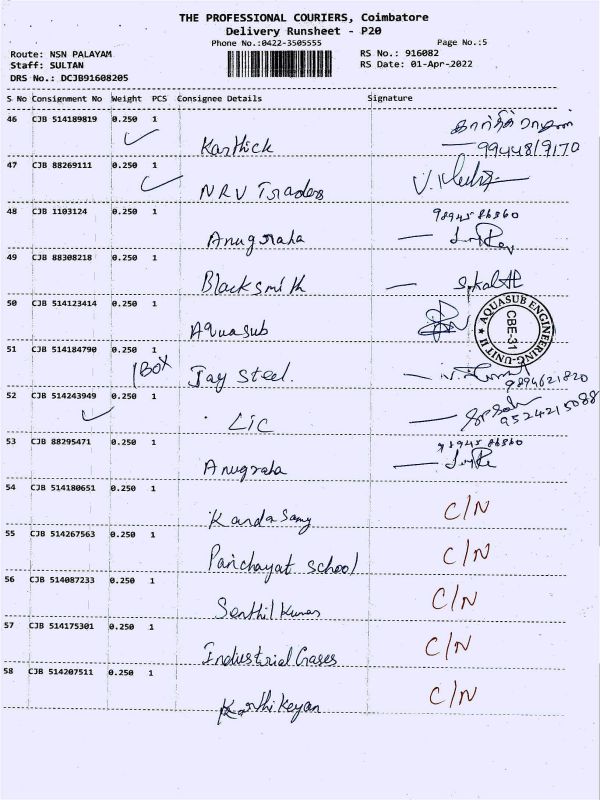 THE PROFESSIONAL COURIERS, Coimbatore
Delivery Runsheet - P20
Phone No.:0422-3505555
Page No.:5
Route: NSN PALAYAM
RS No.: 916082
Staff: SULTAN
RS Date: 01-Apr-2022
DRS No.: DCJB91608205
S No Consignment No Weight PCS Consignee Details Signature
46 CJB 514189819 0.250 1
Karthick
கார்த்திக்
9944819170
47 CJB 88269111 0.250 1
NRV Traders
48 CJB 1103124 0.250 1
9894586860
Anugraha
49 CJB 88308218 0.250 1
Blacksmith
50 CJB 514123414 0.250 1
Aquasub
AQUASUB ENGINEERING-UNIT II
CBE-31
51 CJB 514184790 0.250 1
1 Box
Jay Steel.
9894621820
52 CJB 514243949 0.250 1
LIC
9524215088
53 CJB 88295471 0.250 1
98945 86860
Anugraha
54 CJB 514180651 0.250 1
Kanda Samy
C/N
55 CJB 514267563 0.250 1
Panchayat School
C/N
56 CJB 514087233 0.250 1
Senthil Kumar
C/N
57 CJB 514175301 0.250 1
Industrial Gases
C/N
58 CJB 514207511 0.250 1
Karthikeyan
C/N